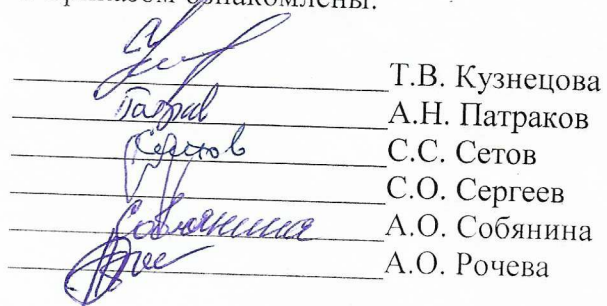 приказом ознакомлены:
Т.В. Кузнецова
А.Н. Патраков
С.С. Сетов
С.О. Сергеев
Собянина А.О. Собянина
А.О. Рочева